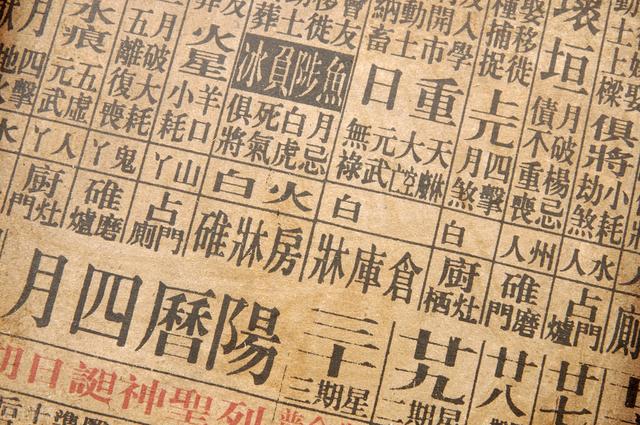 娶移徙
種捕捉
人學
開市
動土
納畜
友
移徙
葬土
壞垣
上元
重日
魚陟負冰
火星
水痕
俱將
小耗
劫煞
月破楊忌
債不重喪
四擊
月煞
大空
元武
無祿
月忌
白虎
死氣
俱將
羊口
小耗
月破大耗
五離復喪
五虛
元武
四擊
水人
州人
白
白
火白
山丫
鬼丫
人丫
占門爐
碓磨門
廚灶栖
倉庫牀
房牀碓
占門廁
碓磨爐
廚灶門
廿七
廿八
廿九
三十
陽曆四月
星期二
星期三
列聖神誕日